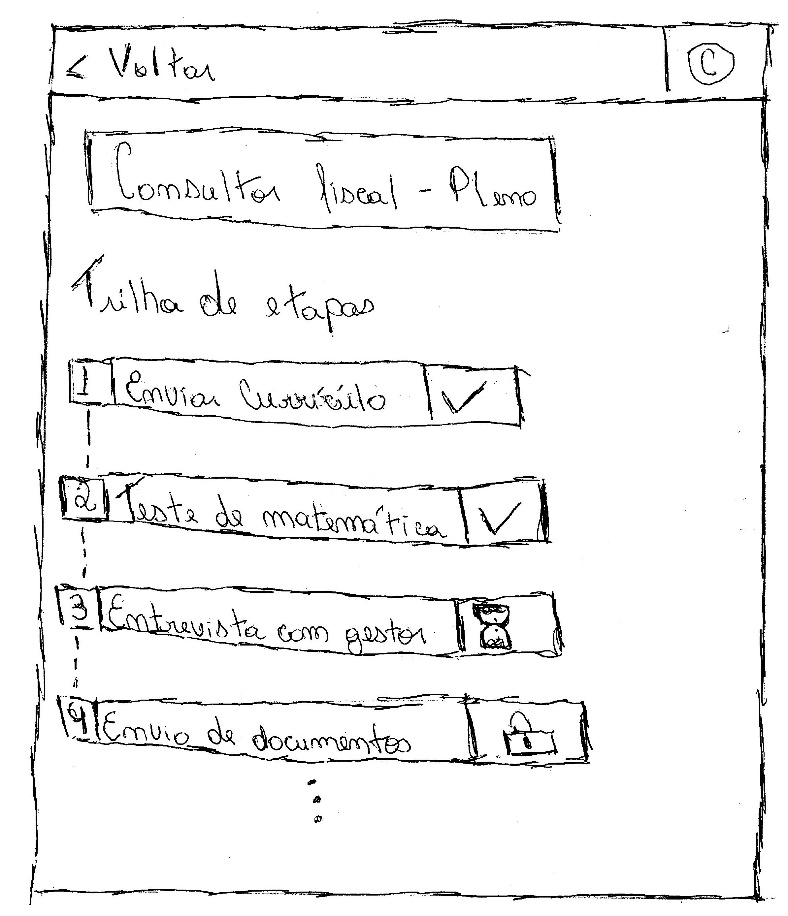 < Voltar
C
Consultor fiscal - Pleno
Trilha de etapas
1 Enviar Currículo
2 Teste de matemática
3 Entrevista com gestor
4 Envio de documentos